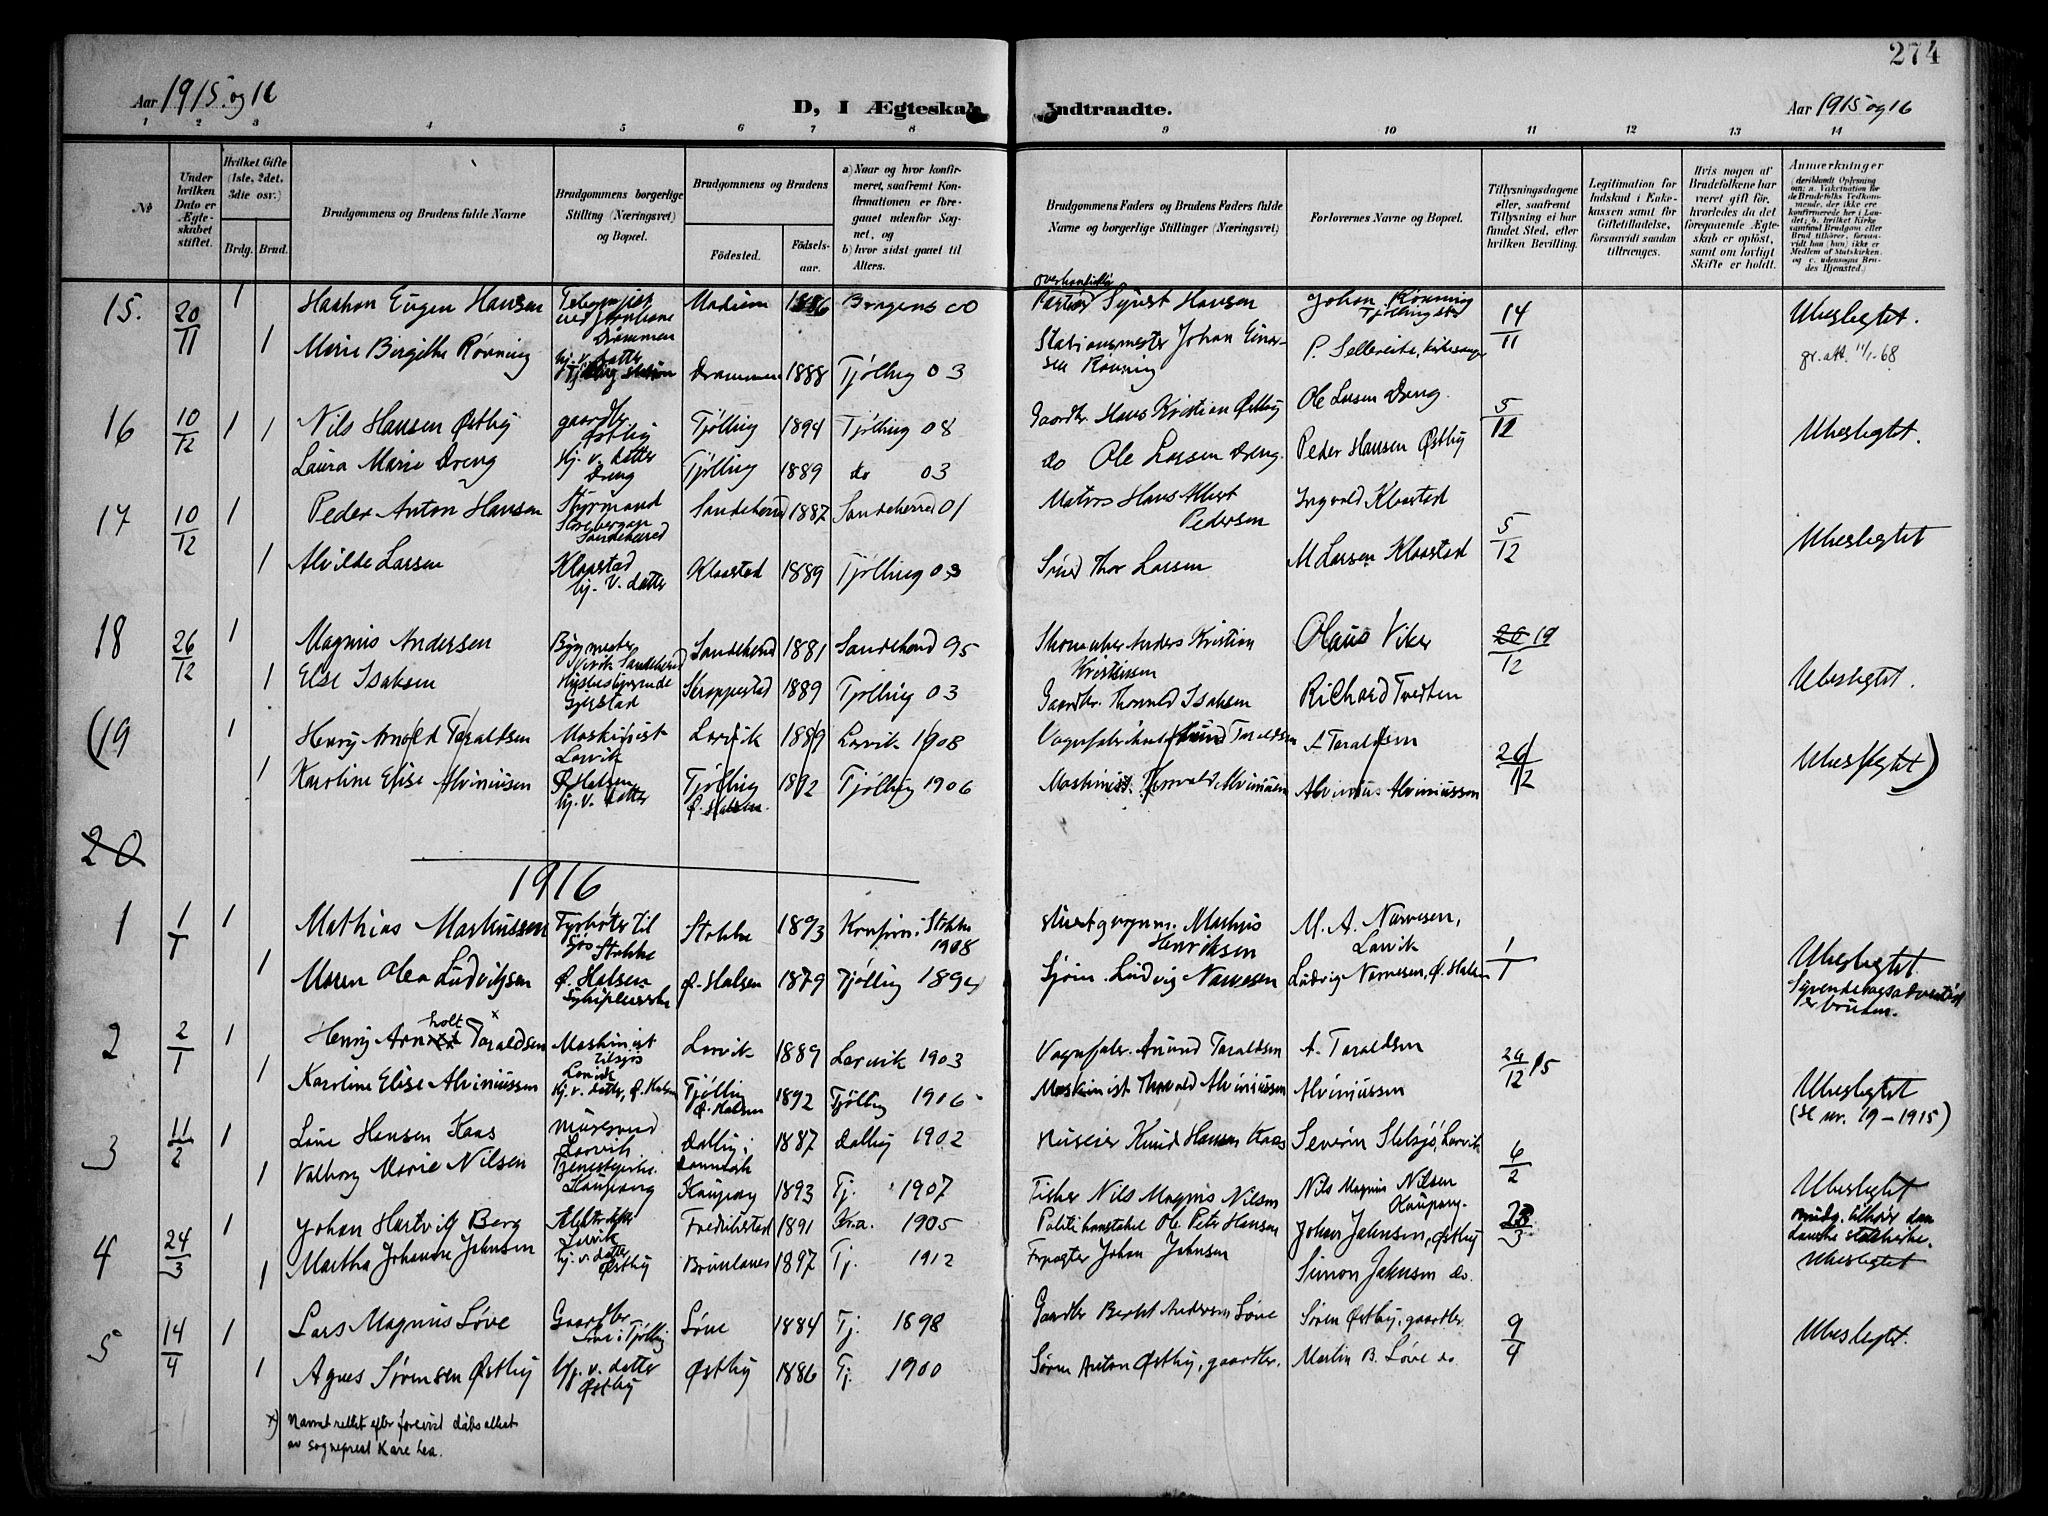 274
Aar 1915 og 16
D, I Ægteskab
Indtraadte.
Aar 1915 og 16
1 2 3 4 5 6 7 8 9 10 11 12 13 14
№
Under hvilken Dato er Ægteskabet stiftet.
Hvilket Gifte (1ste, 2det, 3die osv.)
Brdg. Brud.
Brudgommens og Brudens fulde Navne
Brudgommens borgerlige Stilling (Næringsvei) og Bopæl.
Brudgommens og Brudens
Fødested. Fødselsaar.
a) Naar og hvor konfirmeret, saafremt Konfirmationen er foregaaet udenfor Sognet, og
b) hvor sidst gaaet til Alters.
Brudgommens Faders og Brudens Faders fulde Navne og borgerlige Stillinger (Næringsvei)
Forlovernes Navne og Bopæl.
Tillysningsdagene eller, saafremt Tillysning ei har fundet Sted, efter hvilken Bevilling.
Legitimation for Indskud i Enkekassen samt for Giftetilladelse, forsaavidt saadan tiltrænges.
Hvis nogen af Brudefolkene har været gift før, hvorledes da det foregaaende Ægteskab er opløst, samt om lovligt Skifte er holdt.
Anmærkninger
15. 20/11 1 Haakon Eugen Hansen 1886 Bragernes 00 Hansen Johan Rønning 14/11 Ubeslegtet.
Drammen
1 Marie Birgithe Rønning hj. v. datter Tjølling station Drammen 1888 Tjølling 03 Stationsmester Johan Einersen Rønning P. Sellereite, kirkesanger gr. att. 11/1-68
16 10/12 1 1 Nils Hansen Østby gaardbr. Østby Tjølling 1894 Tjølling 08 Gaardbr. Hans Kristian Østby Ole Larsen Dreng. 5/12 Ubeslegtet.
Laura Marie Dreng Hj. v. datter Dreng Tjølling 1889 do 03 do Ole Larsen Dreng. Peder Hansen Østby
17 10/12 1 Peder Anton Hansen Styrmand Sandeherred Sandeherred 1887 Sandeherred 01 Matros Hans Albert Pedersen Ingvald Klaastad 5/12 Ubeslegtet
1 Alvilde Larsen Klaastad hj. v. datter Klaastad 1889 Tjølling 03 Thor Larsen M Larsen Klaastad
18 26/12 1 Magnus Andersen Bygmester Sandeherred Sandeherred 1881 Sandeherred 95 Skomaker Anders Kristian Kristensen Olaus Viker 20 19/12 Ubeslegtet.
1 Else Isaksen Husbestyrende 1889 Tjølling 03 Gaardbr. Thorvald Isaksen Richard Tvedten
(19 1 Henry Arnold Taraldsen Maskinist Larvik Larvik 1889 Larvik 1908 Vognfabrikant Taraldsen A Taraldsen 26/12 Ubeslegtet)
1 Karoline Elise Alviniussen Ø Halsen hj. v. datter Tjølling Ø. Halsen 1892 Tjølling 1906 Maskinist Thorvald Alviniussen Alvinius Alviniussen
20
1916
1 1/1 1 Mathias Markussen Fyrbøter til sjøs Stokke Stokke 1893 Konfirm. i Stokke 1908 Markus Henriksen M. A. Narvesen, Larvik 1/1 Ubeslegtet.
1 Maren Olea Ludvigsen Ø. Halsen Sykepleierske Ø. Halsen 1879 Tjølling 1894 Sjøm. Ludvig Narvesen Ludvig Narvesen, Ø. Halsen Syvendedagsadventist er bruden.
2 2/1 1 Henry Arnholt x Taraldsen Maskinist tilsjøs Larvik Larvik 1889 Larvik 1903 Vognfabr. Anund Taraldsen A. Taraldsen 26/12 15
1 Karoline Elise Alviniussen Hj. v. datter, Ø. Halsen Tjølling Ø. Halsen 1892 Tjølling 1916 Maskinist Thorvald Alviniussen Alviniussen Ubeslegtet (se nr. 19 – 1915)
3 11/2 1 Line Hansen Kaas Murersvend Larvik Dalby i Danmark 1887 Dalby 1902 Knud Hansen Kaas Severin Stelsjø, Larvik 6/2 Ubeslegtet
1 Valborg Marie Nilsen Tjenestepike Kaupang Kaupang 1893 Tj. 1907 Fisker Nils Magnus Nilsen Nils Magnus Nilsen Kaupang. Brudg. tilhører den danske statskirke.
4 24/3 1 Johan Hartvig Berg Larvik Fredrikstad 1891 Kra. 1905 Politikonstabel Ole Peter Hansen Johan Johnsen, Østby 23/3
1 Martha Johanne Johnsen hj. v. datter Østby Brunlanes 1897 Tj. 1912 Forpagter Johan Johnsen Simon Johnsen do. Ubeslegtet
5 14/4 1 Lars Magnus Løve Gaardbr Løve i Tjølling Løve 1884 Tj. 1898 Gaardbr Berthl Andersen Løve Søren Østby, gaardbr. 9/4 Ubeslegtet.
1 Agnes Sørensen Østby Hj. v. datter Østby Østby 1886 Tj. 1900 Søren Anton Østby, gaardbr. Martin B. Løve do.
x) Navnet rettet efter forevist dåbsattest
av sogneprest Kåre Lea.